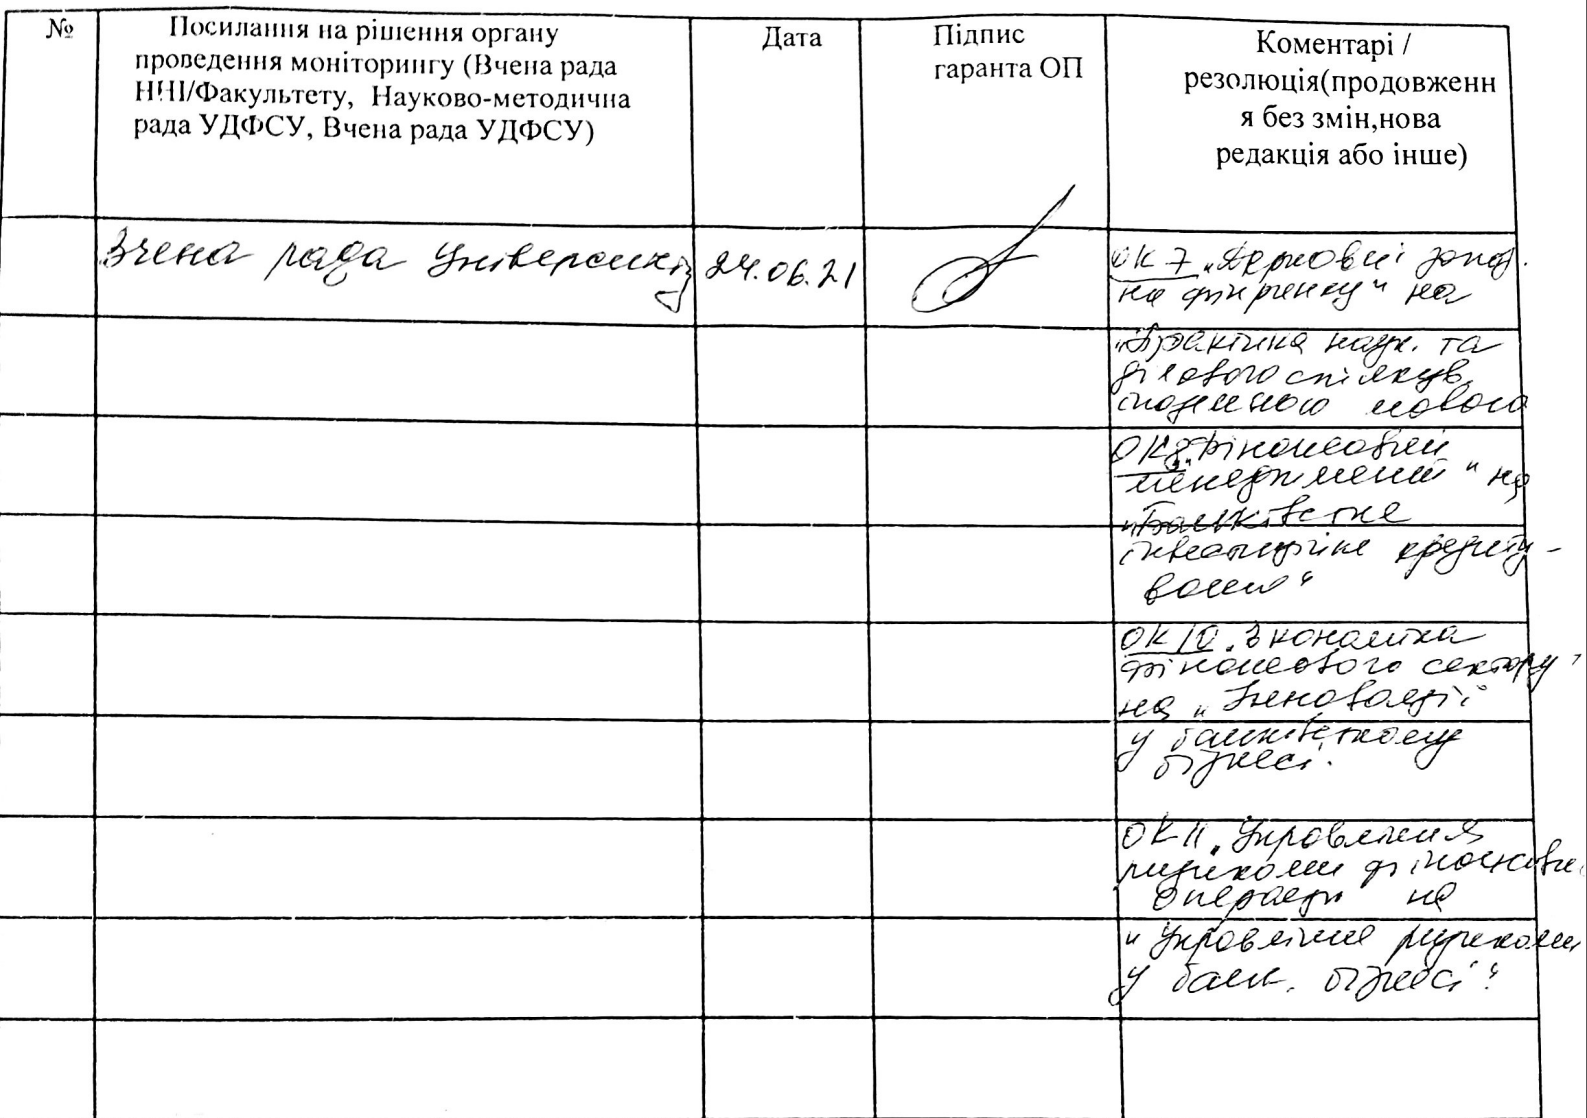 №
Посилання на рішення органу
проведення моніторингу (Вчена рада
ННІ/Факультету, Науково-методична
рада УДФСУ, Вчена рада УДФСУ)
Дата
Підпис
гаранта ОП
Коментарі /
резолюція(продовженн
я без змін,нова
редакція або інше)
Вчена рада Університету
24.06.21
ОК 7 „Державні
на фін ринку" на
„Практика наук. та
ділового спілкув.
іноземною мовою
ОК8 „Фінансовий
менеджмент" на
„Банківське
інвестиційне кредиту-
вання"
ОК 10 „Економіка
фінансового сектору"
на „Інновації
у банківському
бізнесі.
ОК 11 „Управління
ризиками фінансових
операцій на
„Управління ризиками
у банк. бізнесі"